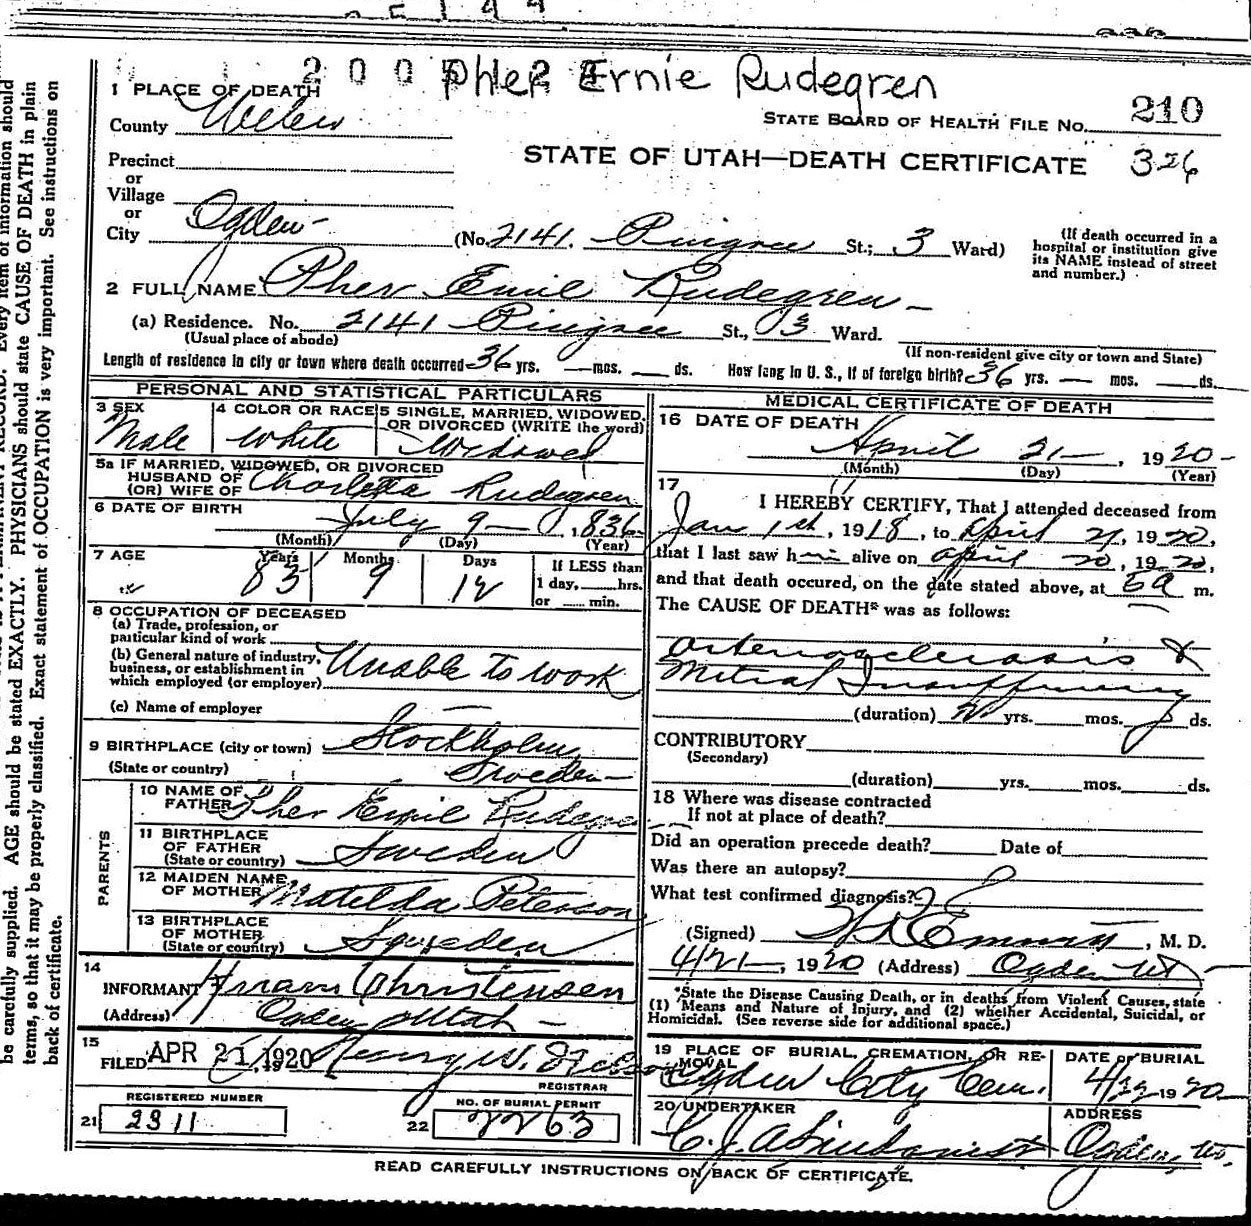 Pher Ernie Rudegren
1 PLACE OF DEATH
County Weber
STATE BOARD OF HEALTH FILE No. 210
STATE OF UTAH—DEATH CERTIFICATE 326
Precinct
or
Village
or
City Ogden (No. 2141. Pingree St.; 3 Ward)
(If death occurred in a
hospital or institution give
its NAME instead of street
and number.)
2 FULL NAME Pher Emil Rudegren
(a) Residence. No. 2141 Pingree St., 3 Ward.
(Usual place of abode)
(If non-resident give city or town and State)
Length of residence in city or town where death occurred 36 yrs. — mos. — ds. How long in U. S., if of foreign birth? 36 yrs. — mos. — ds.
PERSONAL AND STATISTICAL PARTICULARS
3 SEX 4 COLOR OR RACE 5 SINGLE, MARRIED, WIDOWED, OR DIVORCED (WRITE the word)
Male White Widowed
5a IF MARRIED, WIDOWED, OR DIVORCED
HUSBAND OF
(OR) WIFE OF Charlotta Rudegren
6 DATE OF BIRTH
July 9 — , 1836
(Month) (Day) (Year)
7 AGE Years Months Days If LESS than
83 9 12 1 day, hrs.
or min.
8 OCCUPATION OF DECEASED
(a) Trade, profession, or
particular kind of work
(b) General nature of industry,
business, or establishment in
which employed (or employer) Unable to work
(c) Name of employer —
9 BIRTHPLACE (city or town) Stockholm
(State or country) Sweden
PARENTS
10 NAME OF
FATHER Pher Emil Rudegren
11 BIRTHPLACE
OF FATHER
(State or country) Sweden
12 MAIDEN NAME
OF MOTHER Matelda Peterson
13 BIRTHPLACE
OF MOTHER
(State or country) Sweden
14
INFORMANT Hiram Christensen
(Address) Ogden Utah
15
FILED APR 21 1920 Henry W.
REGISTRAR
REGISTERED NUMBER
21 2311
NO. OF BURIAL PERMIT
22 2263
MEDICAL CERTIFICATE OF DEATH
16 DATE OF DEATH
April 21 — , 1920
(Month) (Day) (Year)
17
I HEREBY CERTIFY, That I attended deceased from
Jan 1st, 1918, to April 21, 1920,
that I last saw him alive on April 20, 1920,
and that death occured, on the date stated above, at 5a m.
The CAUSE OF DEATH* was as follows:
Arteriosclerosis &
Mitral Insufficiency
(duration) 2 yrs. mos. ds.
CONTRIBUTORY
(Secondary)
(duration) yrs. mos. ds.
18 Where was disease contracted
If not at place of death?
Did an operation precede death? Date of
Was there an autopsy?
What test confirmed diagnosis?
(Signed) , M. D.
4/21, 1920 (Address) Ogden Ut
*State the Disease Causing Death, or in deaths from Violent Causes, state
(1) Means and Nature of Injury, and (2) whether Accidental, Suicidal, or
Homicidal. (See reverse side for additional space.)
19 PLACE OF BURIAL, CREMATION, OR RE-
MOVAL
Ogden City Cem.
DATE OF BURIAL
4/22 1920
20 UNDERTAKER
ADDRESS
Ogden, Ut.
READ CAREFULLY INSTRUCTIONS ON BACK OF CERTIFICATE.
be carefully supplied. AGE should be stated EXACTLY. PHYSICIANS should state CAUSE OF DEATH in plain
terms, so that it may be properly classified. Exact statement of OCCUPATION is very important. See instructions on
back of certificate.